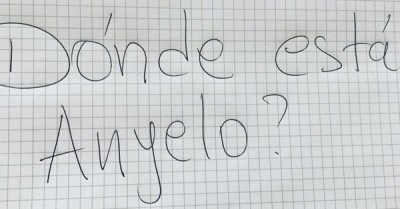 Dónde está
Anyelo?